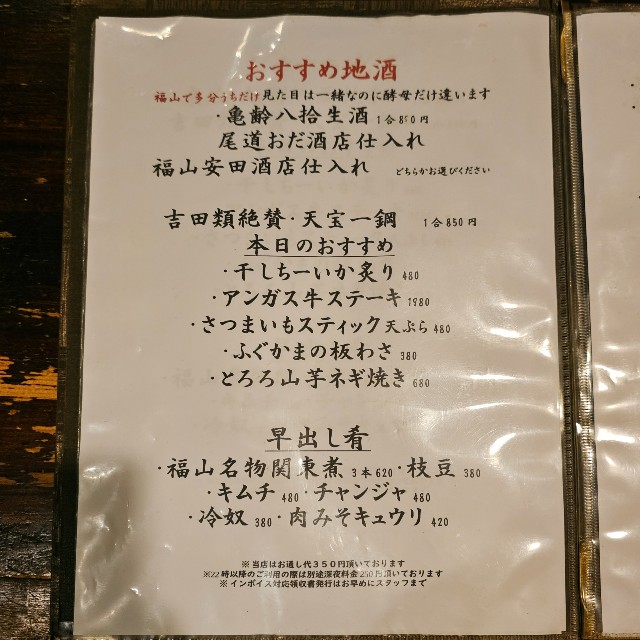 おすすめ地酒
福山で多分うちだけ見た目は一緒なのに酵母だけ違います
・亀齢八拾生酒 1合850円
尾道おだ酒店仕入れ
福山安田酒店仕入れ どちらかお選びください
吉田類絶賛・天宝一鋼 1合850円
本日のおすすめ
・干しちーいか炙り 480
・アンガス牛ステーキ 1980
・さつまいもスティック天ぷら 480
・ふぐかまの板わさ 380
・とろろ山芋ネギ焼き 680
早出し肴
・福山名物関東煮 3本620・枝豆 380
・キムチ 480・チャンジャ 480
・冷奴 380・肉みそキュウリ 420
※当店はお通し代350円頂いております
※22時以降のご利用の際は別途深夜料金250円頂いております
※インボイス対応領収書発行はお早めにスタッフまで